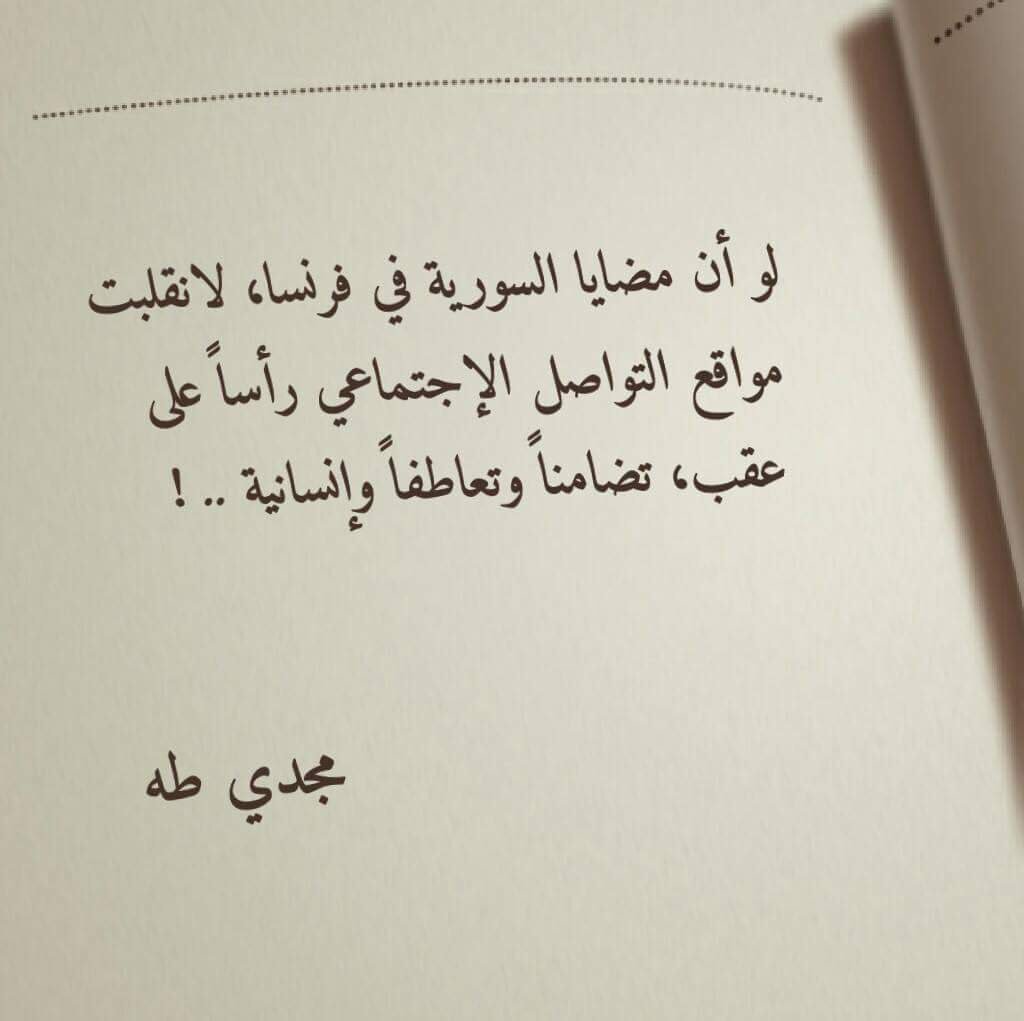 لو أن مضايا السورية في فرنسا، لانقلبت
مواقع التواصل الإجتماعي رأساً على
عقب، تضامناً وتعاطفاً وإنسانية .. !
مجدي طه